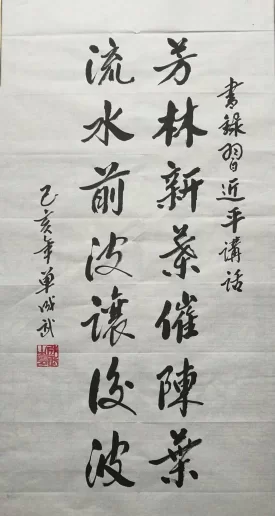 書錄習近平講話
芳林新葉催陳葉
流水前波讓後波
己亥年單成武